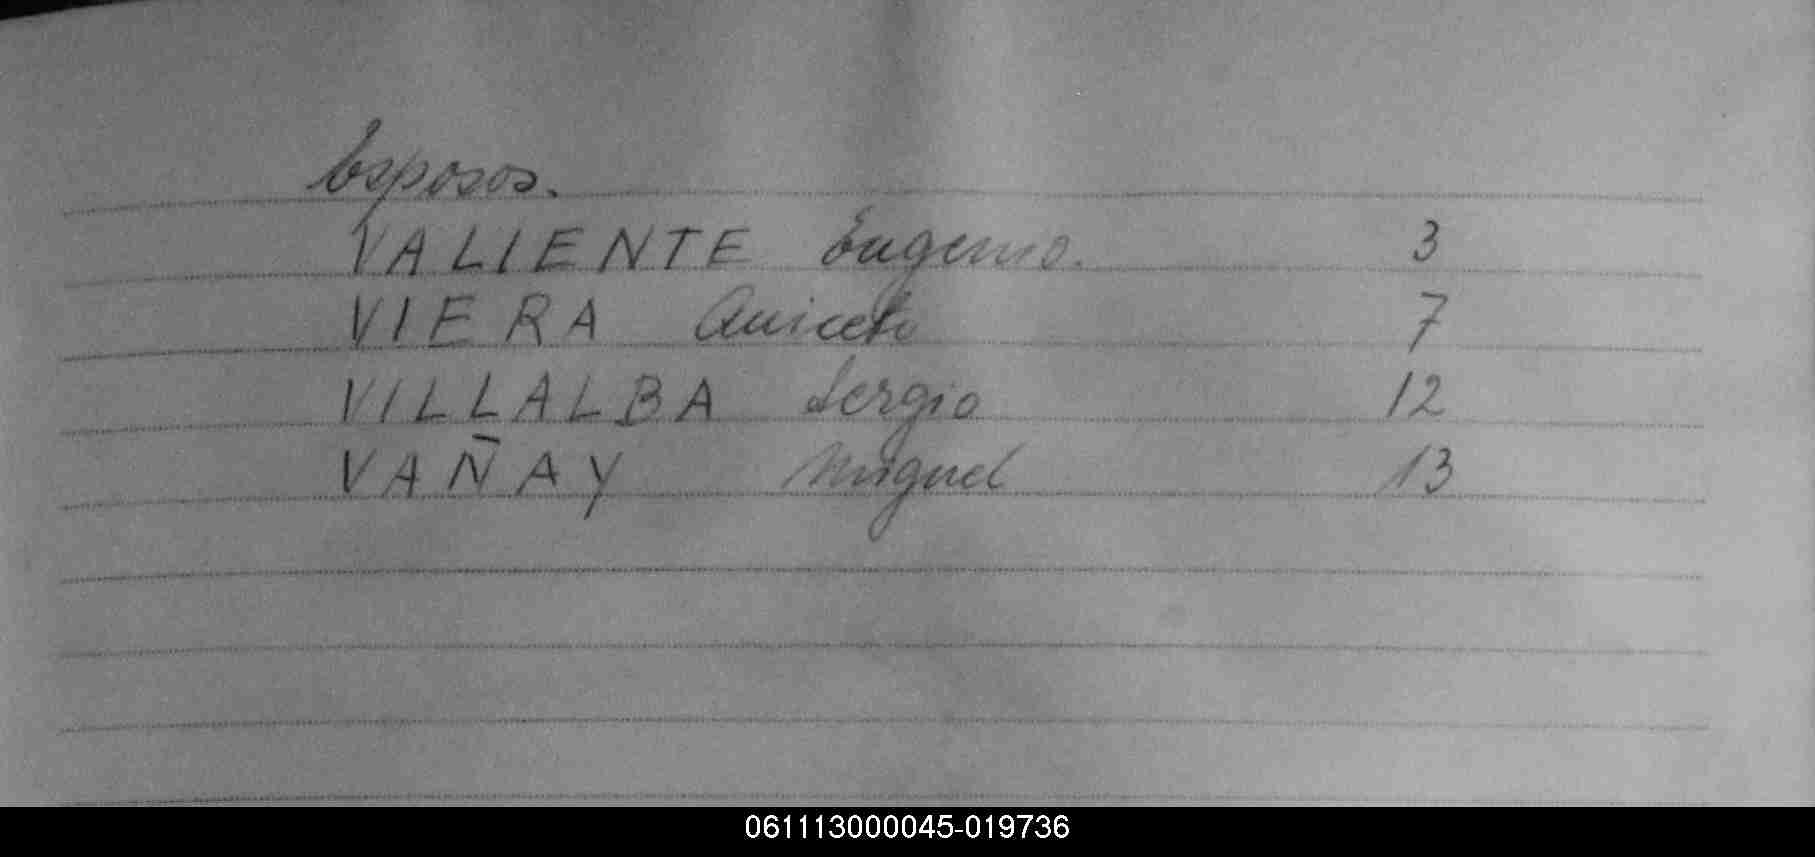 Esposos.
VALIENTE Eugenio. 3
VIERA Aniceto 7
VILLALBA Sergio 12
VAÑAY Miguel 13
061113000045-019736